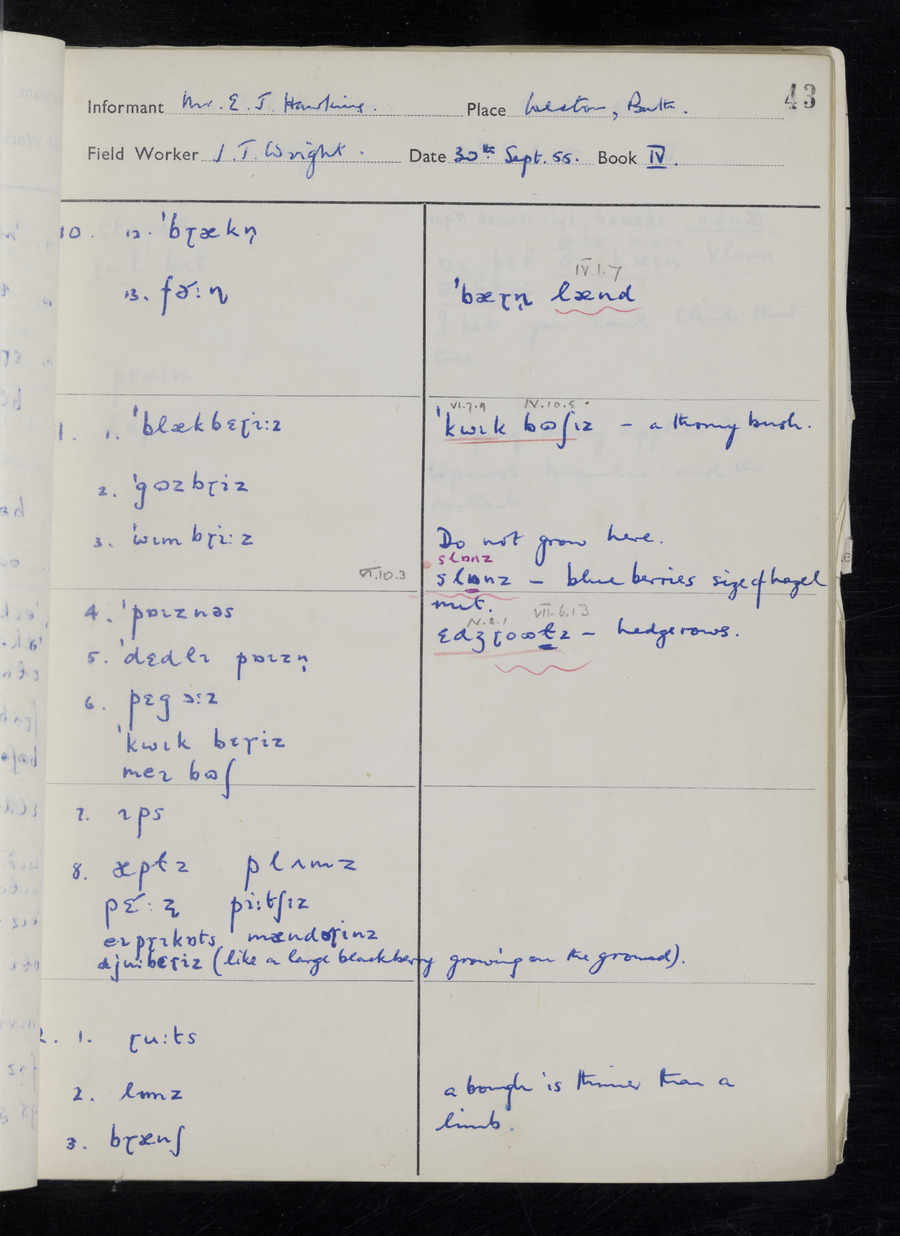 43
Informant Mr. E. J. Hawkins. Place Weston, Buck.
Field Worker J. T. Wright. Date 30th Sept. 55. Book IV.
10. 12. ˈbɽækn̩
13. fə̄ːɳ
IV.1.7
ˈbæɽn̩ lænd
1. 1. ˈblækbɛɽiːz
VI.7.9 IV.10.5
ˈkwɪk bɷʃɪz – a thorny bush.
2. ˈgɷzbɽiz
3. ˈwɪmbɽiːz
Do not grow here.
slɒnz
VI.10.3
slɒnz – blue berries size of hazel
nut.
4. ˈpɒɪznəs
IV.2.1 VII.6.13
ɛdʒɽoɷtz – hedgerows.
5. ˈdɛdlɪ pɒɪzn̩
6. pɛg ɔːz
ˈkwɪk bɛɽiz
meɪ bɷʃ
7. ɪps
8. æpɫz plʌmz
pɛ̄ːz̢ piːtʃɪz
eɪpɽɪkɒts mændəɽinz
djuːbɛɽiz (like a large blackberry growing on the ground).
2. 1. ɽuːts
2. lɪmz
a bough is thinner than a
limb.
3. bɽænʃ